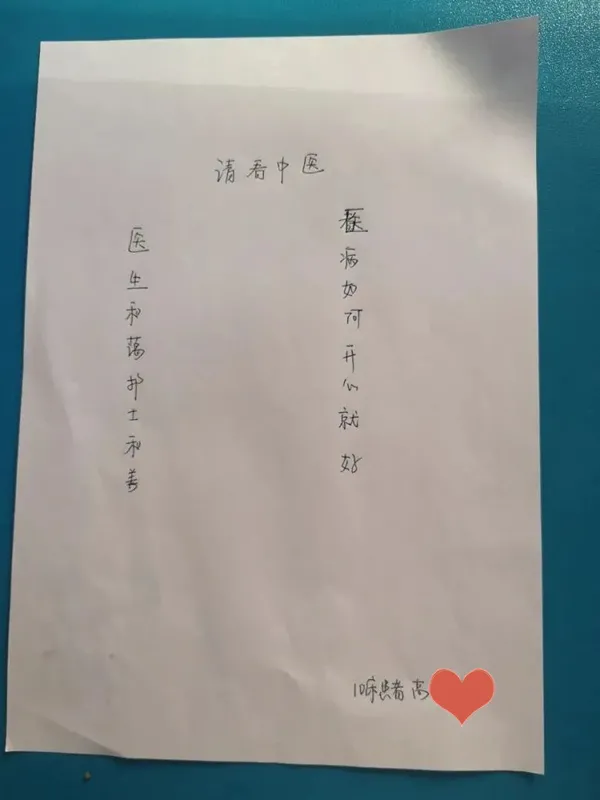 请看中医
医病如何开心就好
医生和蔼护士和善
10床患者高